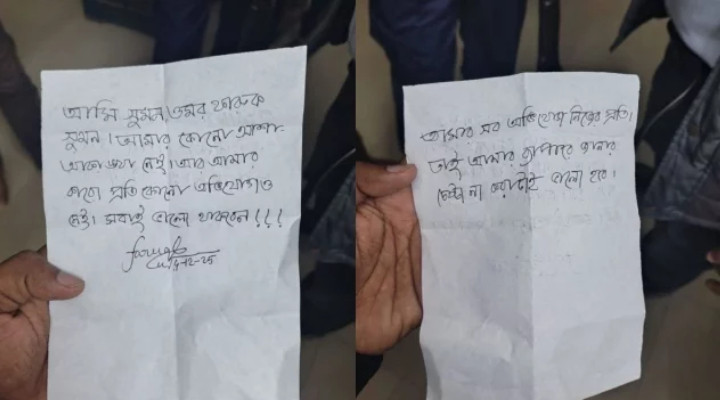 আমি সুমন, ওমর ফারুক
সুমন। আমার কোনো আশা-
আকাঙ্ক্ষা নেই। আর আমার
কারো প্রতি কোনো অভিযোগও
নেই। সবাই ভালো থাকবেন!!!
আমার সব অভিযোগ নিজের প্রতি।
তাই আমার ব্যাপারে জানার
চেষ্টা না করাটাই ভালো হবে।